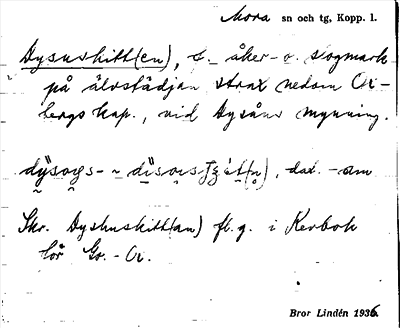 Mora sn och tg, Kopp. l.
Dysuskitt(en), t. åker- o. slogmark
på älvslädjan strax nedom Ox-
bergs kap., vid Dysåns mynning.
dat. -am
Skr. Dyshuskitt(an) fl. g. i Kerbok
för Gr. - Ox.
Bror Lindén 1936.